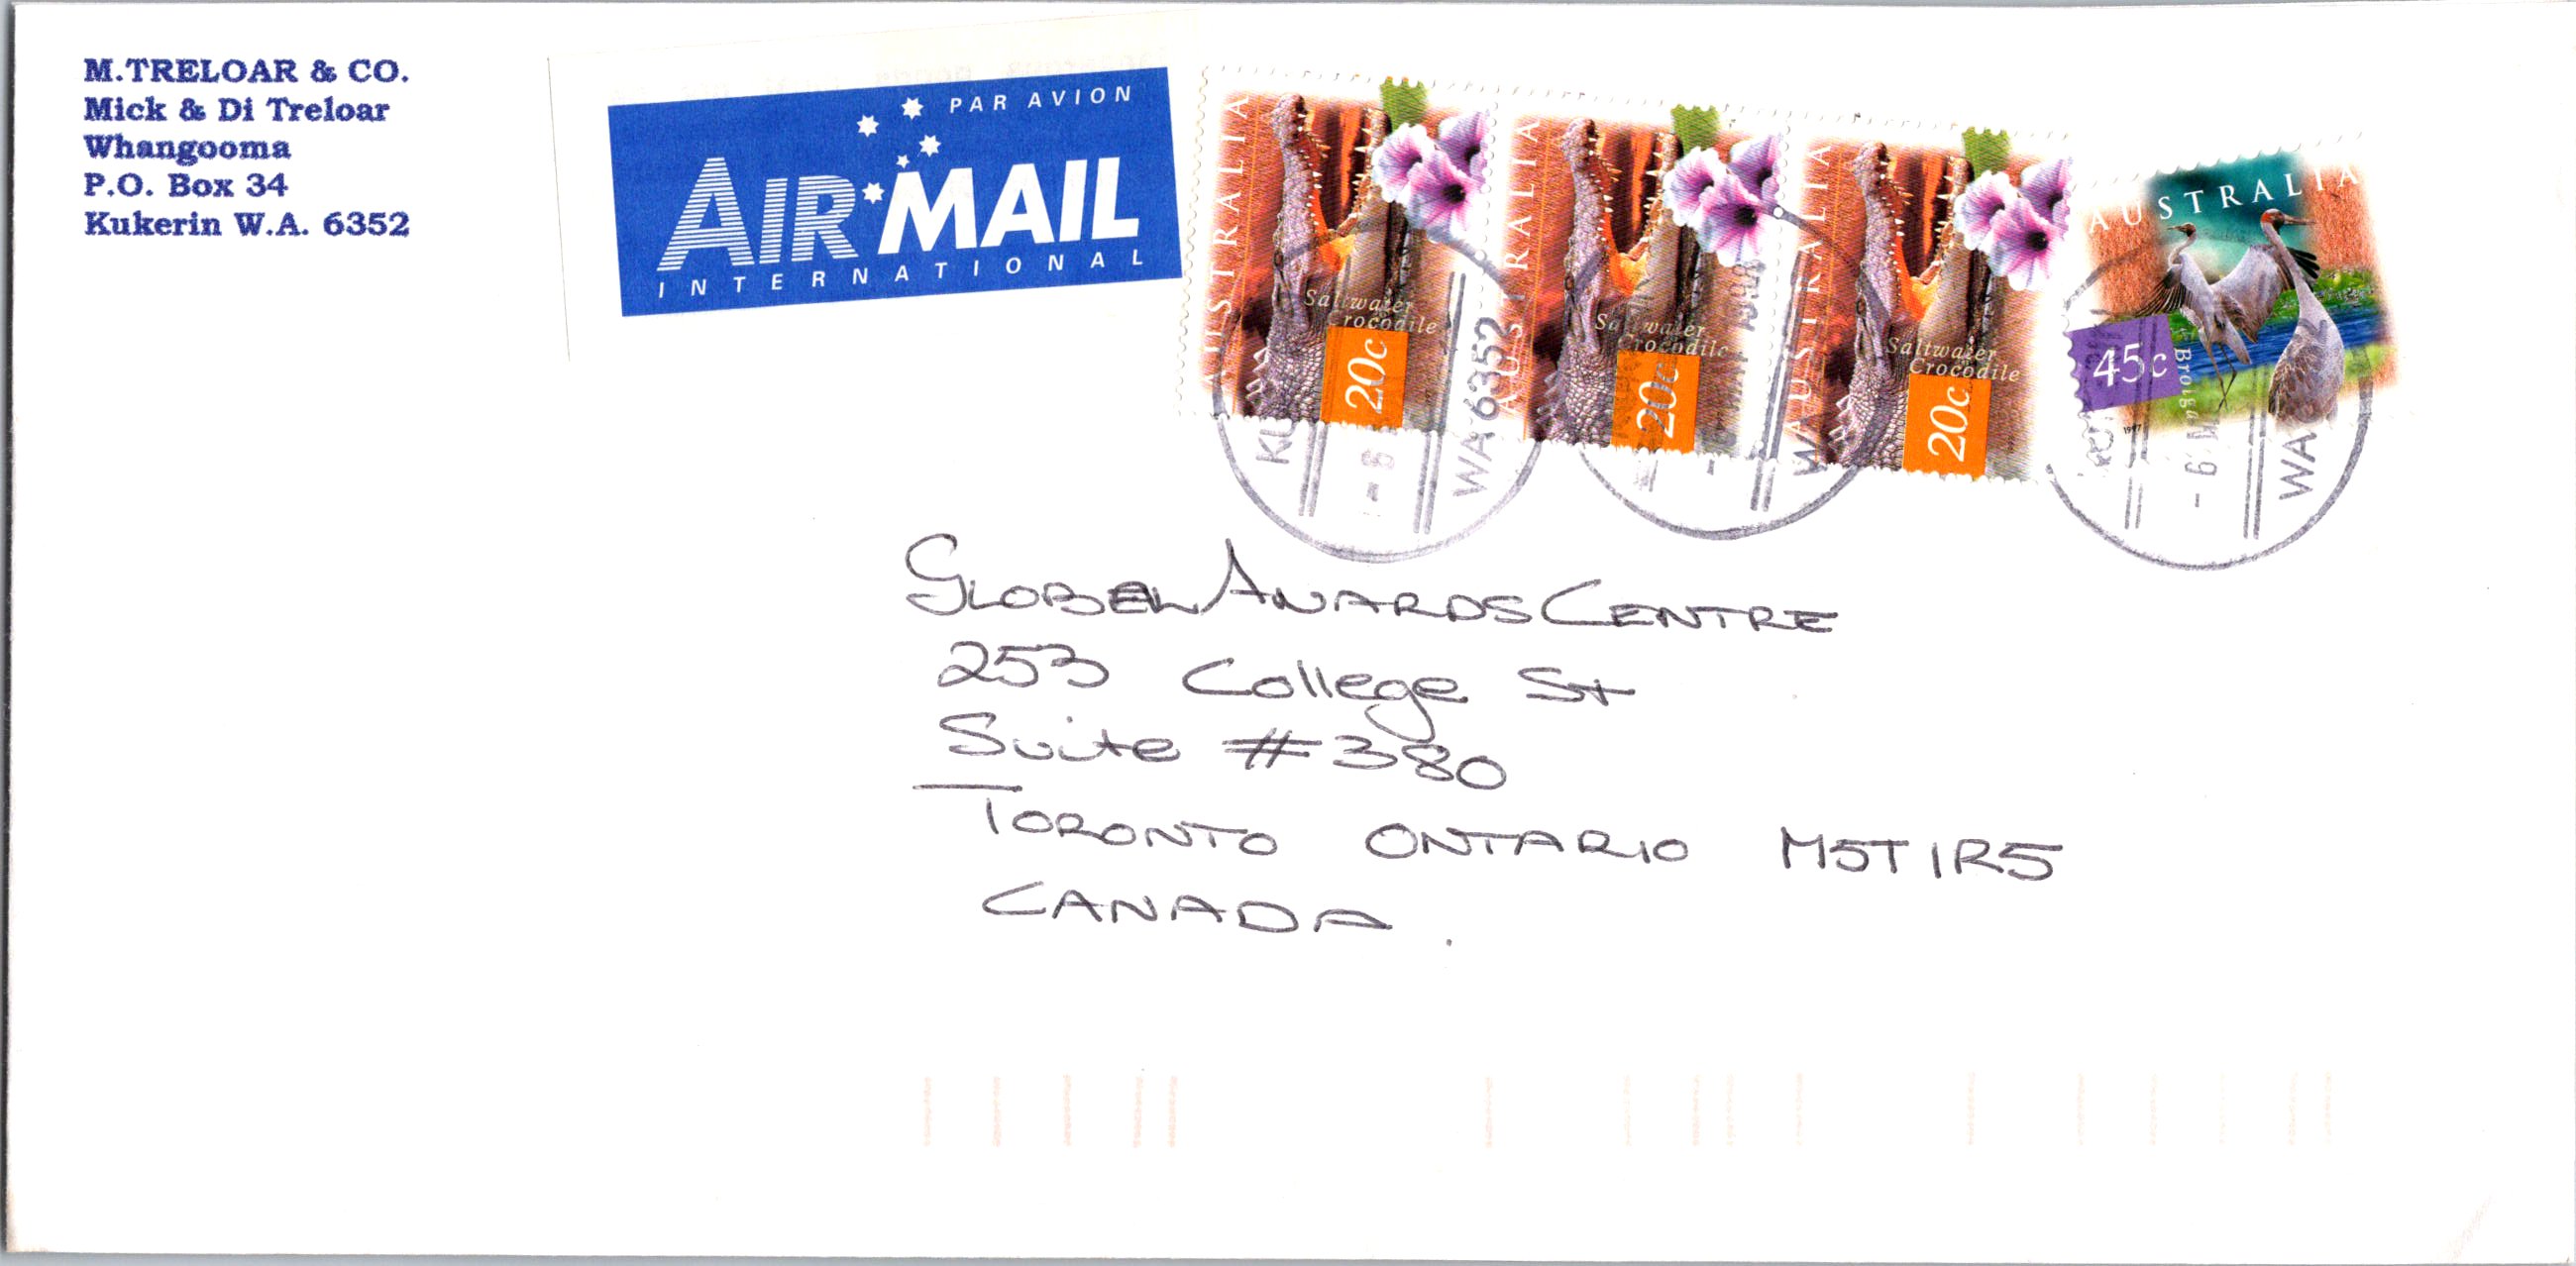 M.TRELOAR & CO.
Mick & Di Treloar
Whangooma
P.O. Box 34
Kukerin W.A. 6352
PAR AVION
AIR MAIL
INTERNATIONAL
AUSTRALIA
Saltwater
Crocodile
20c
AUSTRALIA
Saltwater
Crocodile
20c
AUSTRALIA
Saltwater
Crocodile
20c
AUSTRALIA
45c
Brolga
1997
WA 6352
GLOBEL AWARDS CENTRE
253 College St
Suite #380
TORONTO ONTARIO M5T1R5
CANADA.